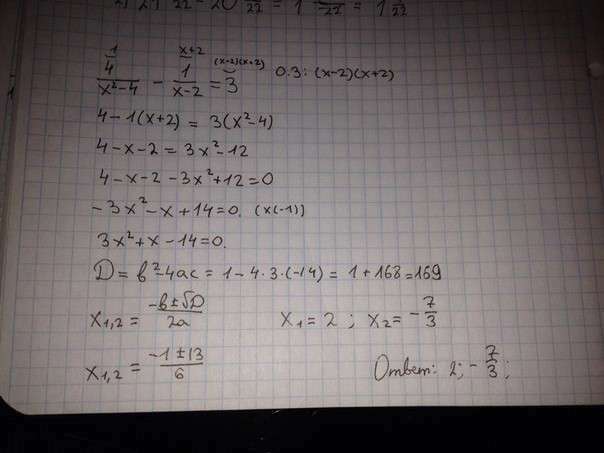 22 - 20 22 = 1 22 = 1 22
1 x+2 (x-2)(x+2)
4/(x²-4) - 1/(x-2) = 3 О.З: (x-2)(x+2)
4-1(x+2) = 3(x²-4)
4-x-2 = 3x²-12
4-x-2-3x²+12=0
-3x²-x+14=0. (x(-1))
3x²+x-14=0.
D = b²-4ac = 1-4·3·(-14) = 1+168=169
x1,2 = (-b±√D)/2a x1=2 ; x2= -7/3
x1,2 = (-1±13)/6 Ответ: 2; -7/3;